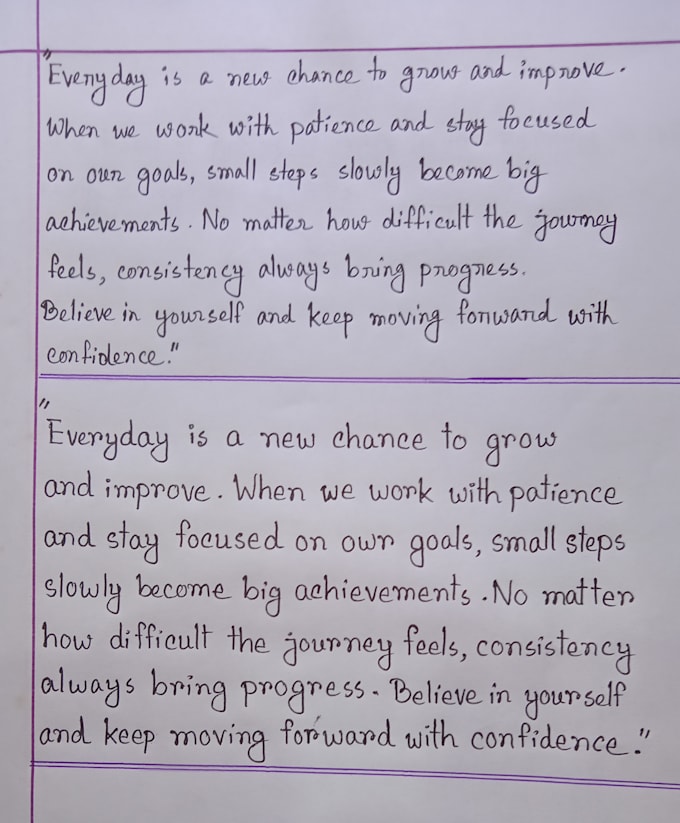 "Everyday is a new chance to grow and improve.
When we work with patience and stay focused
on our goals, small steps slowly become big
achievements. No matter how difficult the journey
feels, consistency always bring progress.
Believe in yourself and keep moving forward with
confidence."
"Everyday is a new chance to grow
and improve. When we work with patience
and stay focused on own goals, small steps
slowly become big achievements. No matter
how difficult the journey feels, consistency
always bring progress. Believe in yourself
and keep moving forward with confidence."